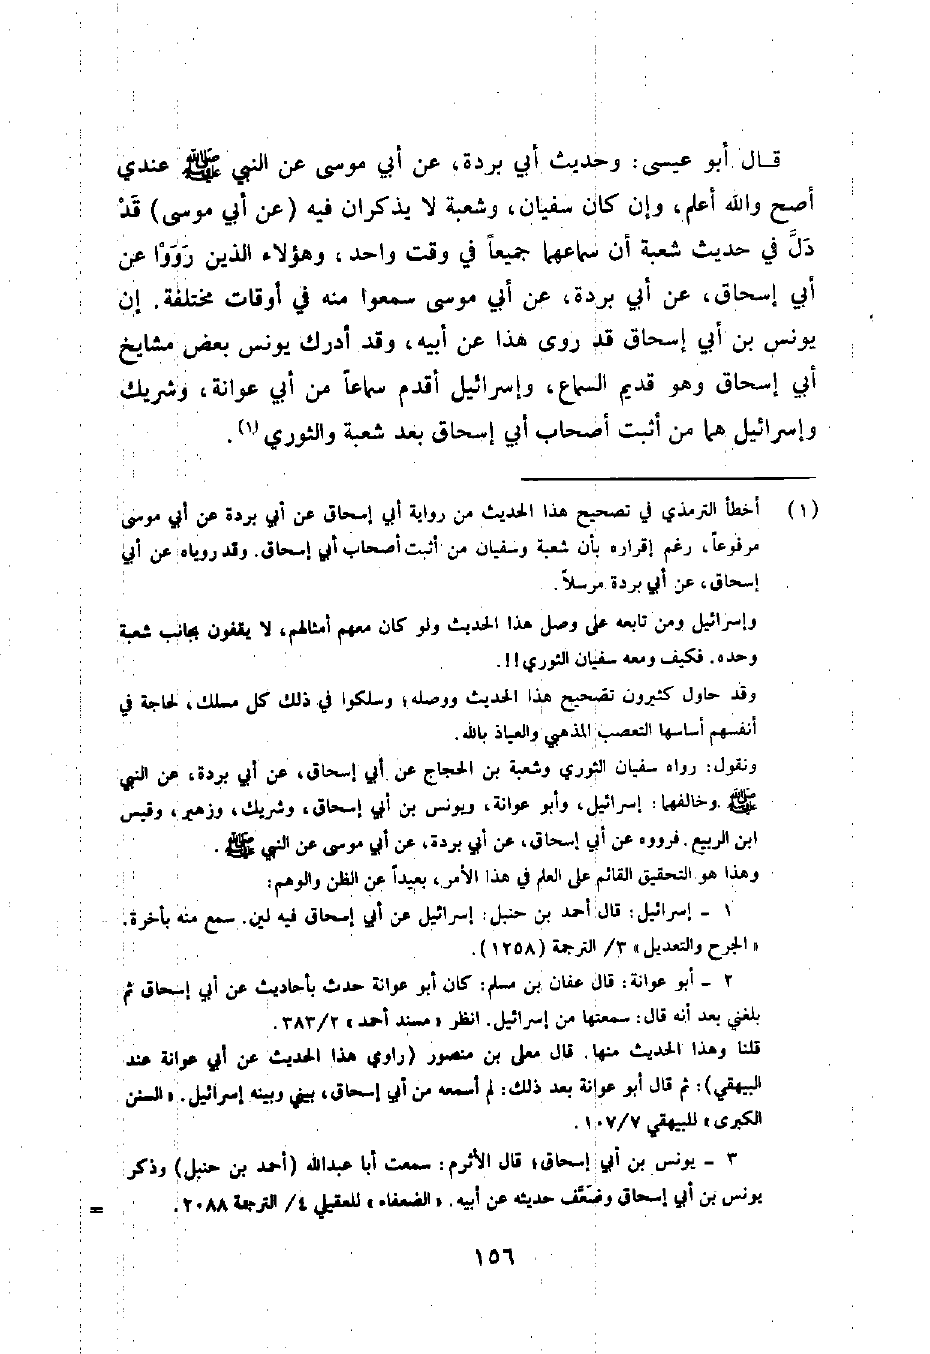 قال أبو عيسى: وحديث أبي بردة، عن أبي موسى عن النبي ﷺ عندي
أصح والله أعلم، وإن كان سفيان، وشعبة لا يذكران فيه (عن أبي موسى) قَدْ
دَلَّ في حديث شعبة أن سماعهما جميعاً في وقت واحد، وهؤلاء الذين رَوَوْا عن
أبي إسحاق، عن أبي بردة، عن أبي موسى سمعوا منه في أوقات مختلفة. إن
يونس بن أبي إسحاق قد روى هذا عن أبيه، وقد أدرك يونس بعض مشايخ
أبي إسحاق وهو قديم السماع، وإسرائيل أقدم سماعاً من أبي عوانة، وشريك
وإسرائيل هما من أثبت أصحاب أبي إسحاق بعد شعبة والثوري (١).
(١) أخطأ الترمذي في تصحيح هذا الحديث من رواية أبي إسحاق عن أبي بردة عن أبي موسى
مرفوعاً، رغم إقراره بأن شعبة وسفيان من أثبت أصحاب أبي إسحاق. وقد روياه عن أبي
إسحاق، عن أبي بردة مرسلاً.
وإسرائيل ومن تابعه على وصل هذا الحديث ولو كان معهم أمثالهم، لا يقفون بجانب شعبة
وحده. فكيف ومعه سفيان الثوري!!.
وقد حاول كثيرون تصحيح هذا الحديث ووصله؛ وسلكوا في ذلك كل مسلك، لحاجة في
أنفسهم أساسها التعصب المذهبي والعياذ بالله.
ونقول: رواه سفيان الثوري وشعبة بن الحجاج عن أبي إسحاق، عن أبي بردة، عن النبي
ﷺ وخالفهما: إسرائيل، وأبو عوانة، ويونس بن أبي إسحاق، وشريك، وزهير، وقيس
ابن الربيع. فرووه عن أبي إسحاق، عن أبي بردة، عن أبي موسى عن النبي ﷺ.
وهذا هو التحقيق القائم على العلم في هذا الأمر، بعيداً عن الظن والوهم:
١ - إسرائيل: قال أحمد بن حنبل: إسرائيل عن أبي إسحاق فيه لين. سمع منه بأخرة.
«الجرح والتعديل» ٣/ الترجمة (١٢٥٨).
٢ - أبو عوانة: قال عفان بن مسلم: كان أبو عوانة حدث بأحاديث عن أبي إسحاق ثم
بلغني بعد أنه قال: سمعتها من إسرائيل. انظر «مسند أحمد» ٣٨٣/٢.
قلنا وهذا الحديث منها. قال معلى بن منصور (راوي هذا الحديث عن أبي عوانة عند
البيهقي): ثم قال أبو عوانة بعد ذلك: لم أسمعه من أبي إسحاق، بيني وبينه إسرائيل. «السنن
الكبرى» للبيهقي ١٠٧/٧.
٣ - يونس بن أبي إسحاق؛ قال الأثرم: سمعت أبا عبدالله (أحمد بن حنبل) وذكر
يونس بن أبي إسحاق وضَعَّف حديثه عن أبيه. «الضعفاء» للعقيلي ٤/ الترجمة ٢٠٨٨. =
١٥٦